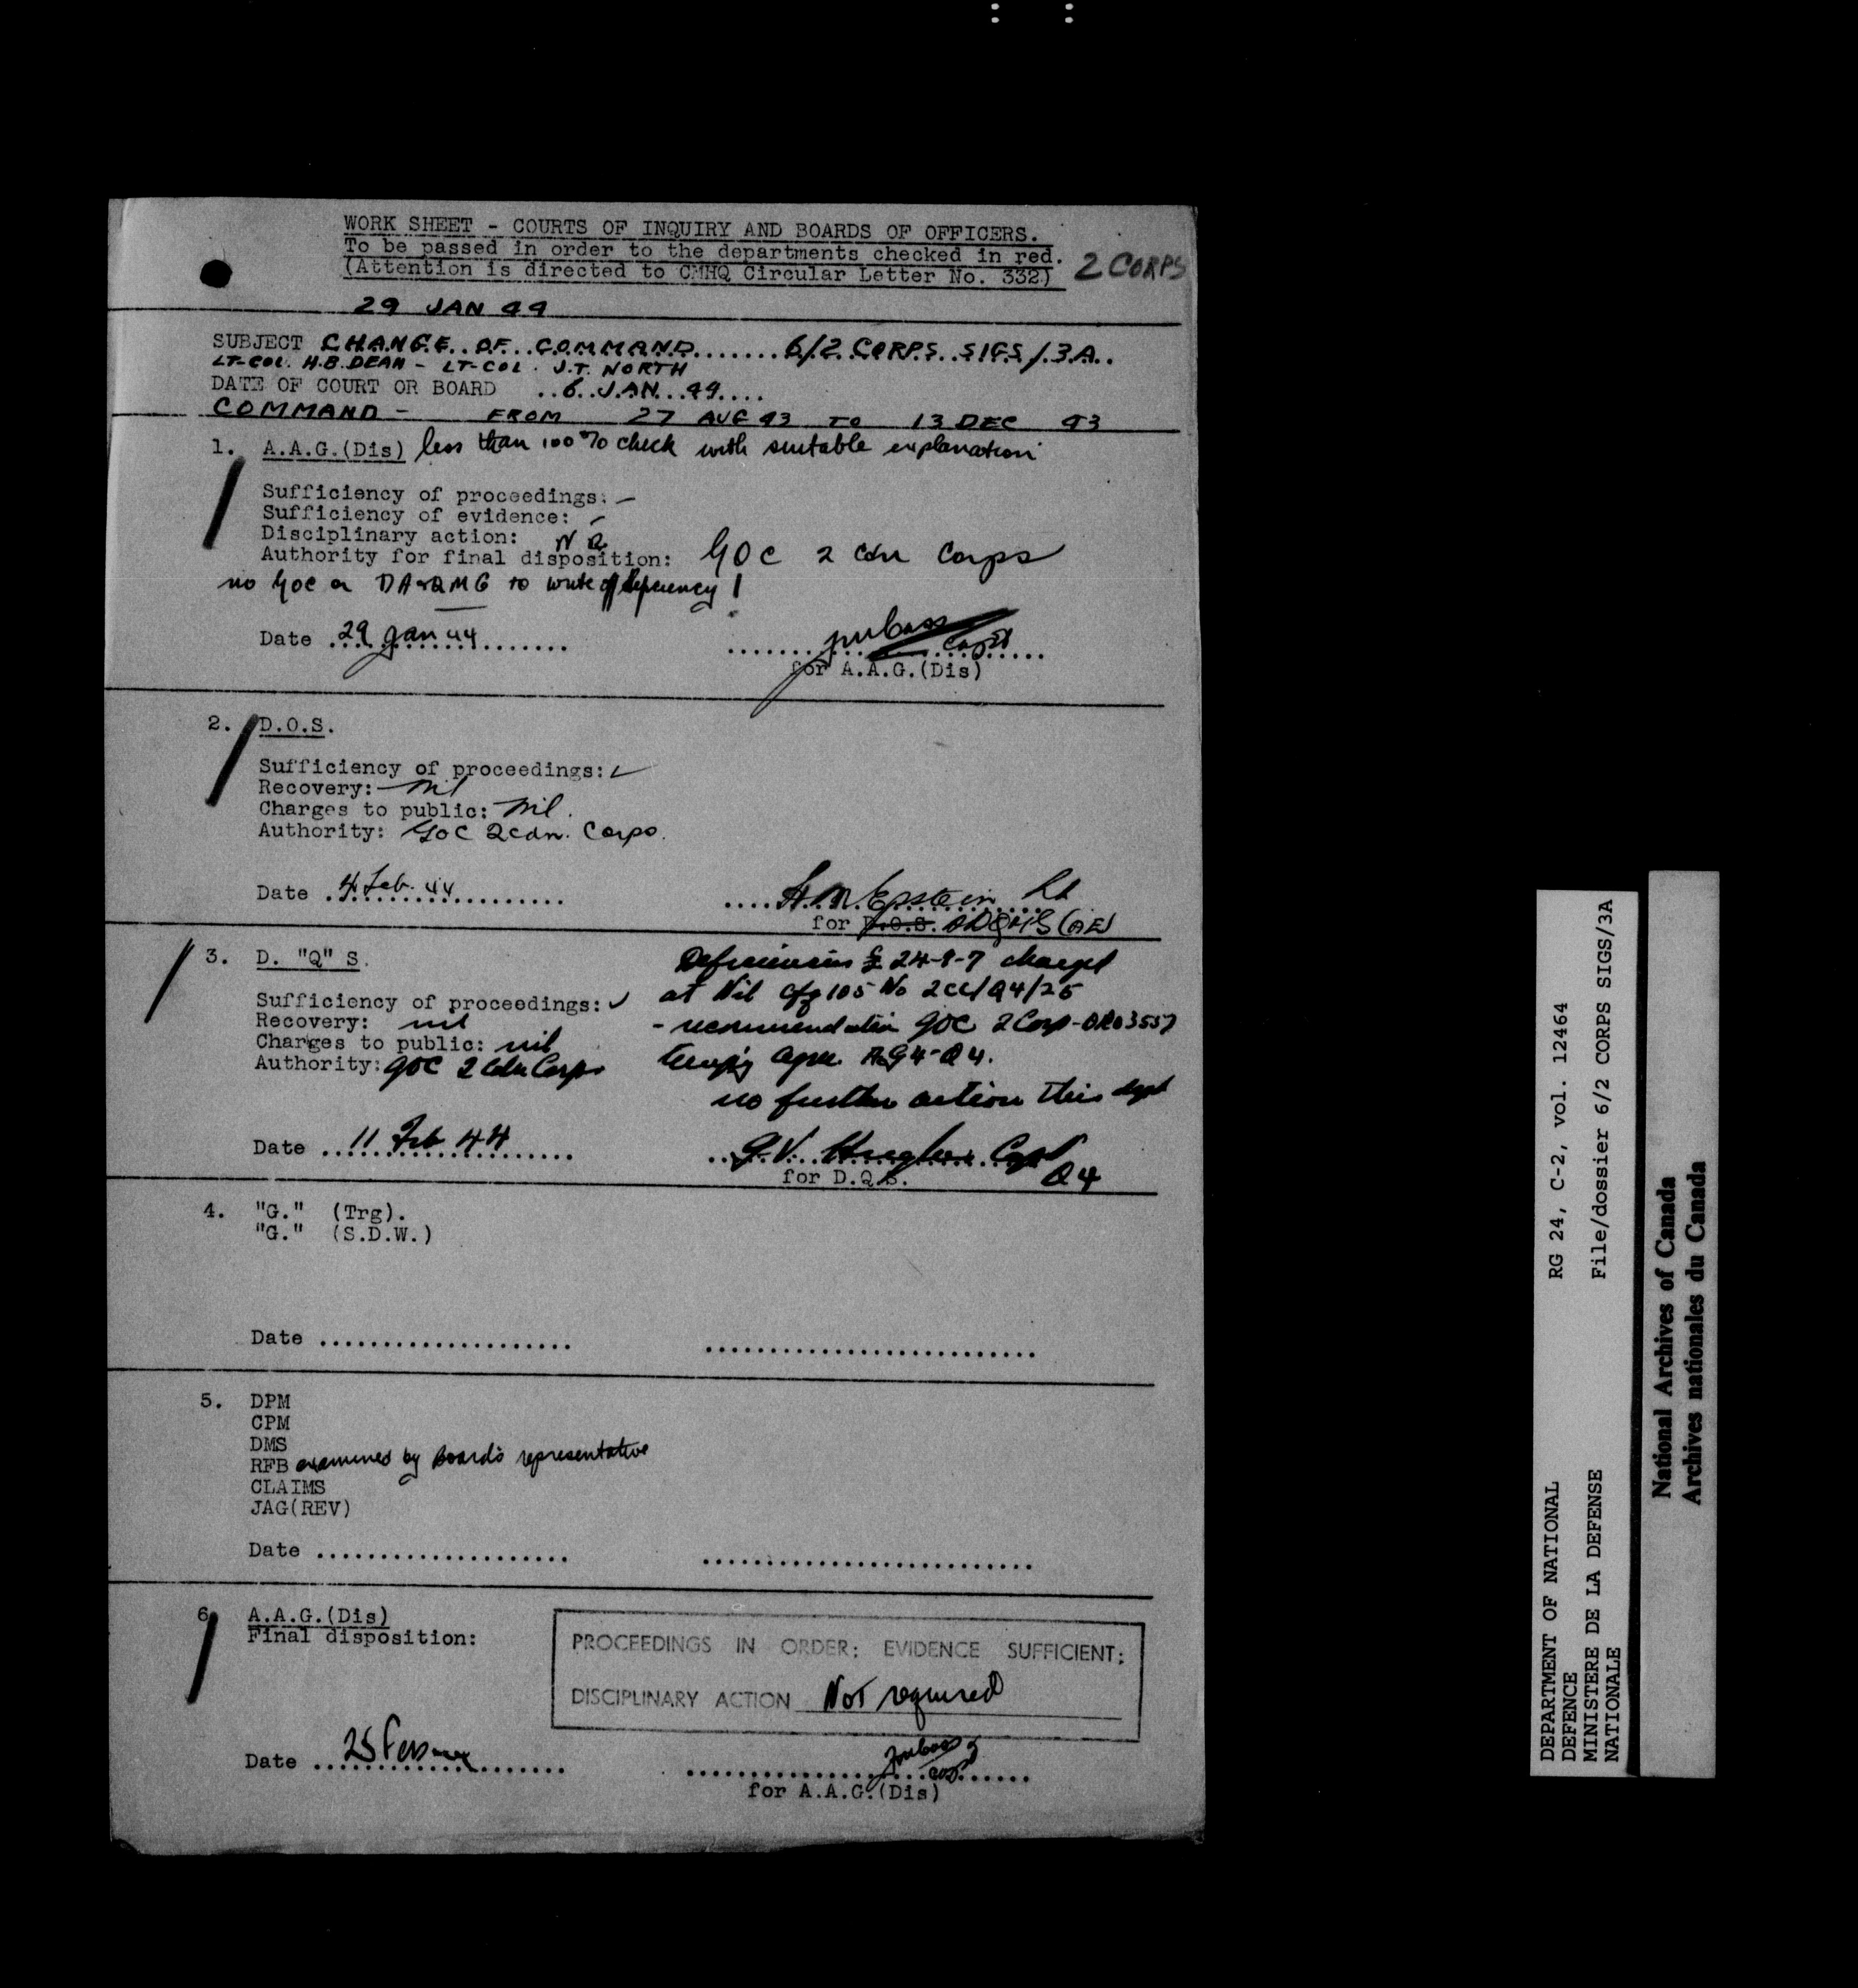 WORK SHEET - COURTS OF INQUIRY AND BOARDS OF OFFICERS.
To be passed in order to the departments checked in red.
(Attention is directed to CMHQ Circular Letter No. 332)
2 CORPS
29 JAN 44
SUBJECT CHANGE OF COMMAND.......6/2 CORPS SIGS/3A..
LT-COL. H.B. DEAN - LT-COL. J.T. NORTH
DATE OF COURT OR BOARD ..6 JAN 44....
COMMAND - FROM 27 AUG 43 TO 13 DEC 43
1. A.A.G.(Dis) less than 100% check with suitable explanation
Sufficiency of proceedings: -
Sufficiency of evidence: -
Disciplinary action: NR
Authority for final disposition: GOC 2 Cdn Corps
no GOC or DA&QMG to write off deficiency !
Date 29 Jan 44
Capt
for A.A.G.(Dis)
2. D.O.S.
Sufficiency of proceedings: ✓
Recovery: nil
Charges to public: nil.
Authority: GOC 2 Cdn. Corps.
Date 4 Feb. 44
Epstein Lt
for D.O.S.
3. D. "Q" S.
Deficiencies £ 24-9-7 charged
at Nil
Sufficiency of proceedings: ✓
Recovery: nil
- recommendation GOC 2 Corp -
Charges to public: nil
Authority: GOC 2 Cdn Corps
no further action this dept
Date 11 Feb 44
G.V. Hughes Capt
for D.Q.S. Q4
4. "G." (Trg).
"G." (S.D.W.)
Date ....................
5. DPM
CPM
DMS
RFB examined by Board's representative
CLAIMS
JAG(REV)
Date ....................
6. A.A.G.(Dis)
Final disposition:
PROCEEDINGS IN ORDER; EVIDENCE SUFFICIENT;
DISCIPLINARY ACTION Not required
Date 25 Feb
for A.A.G.(Dis)
DEPARTMENT OF NATIONAL
DEFENCE
MINISTERE DE LA DEFENSE
NATIONALE
RG 24, C-2, vol. 12464
File/dossier 6/2 CORPS SIGS/3A
National Archives of Canada
Archives nationales du Canada